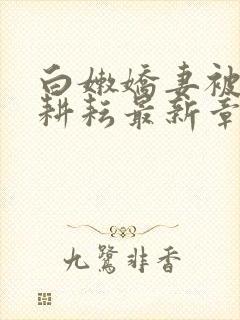 白嫩嬌妻被
耕耘最新章
九鷺非香